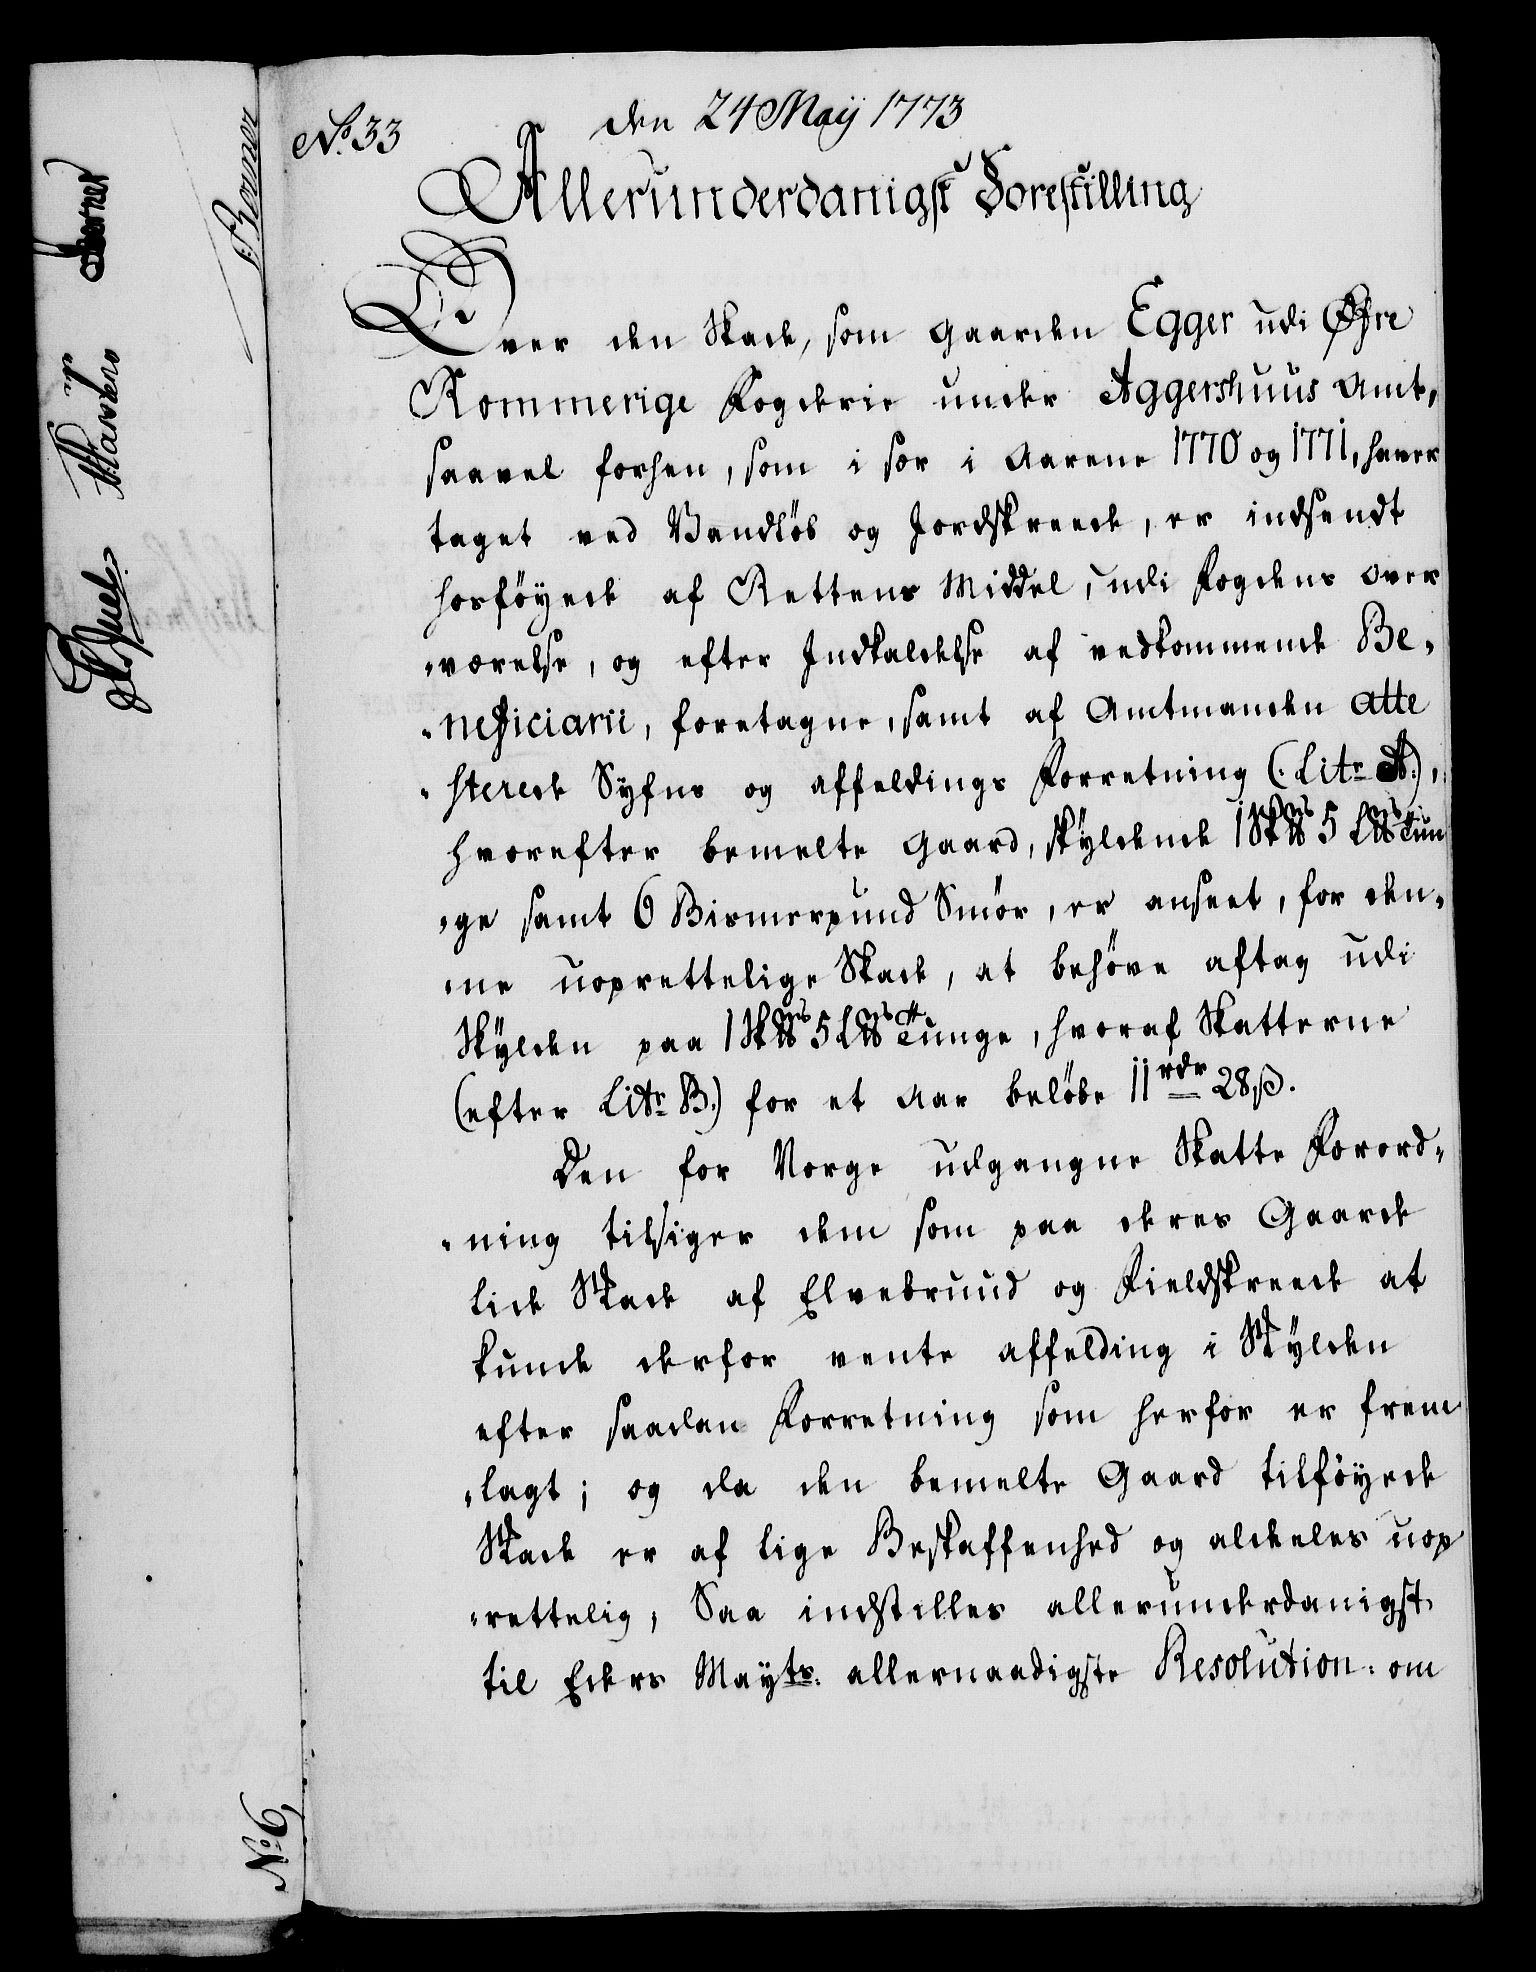 No. 33
den 24 Maij 1773
Allerunderdanigst Forestilling
Over den Skade, som Gaarden Egger udi Øfre
Rommerige Fogderie under Aggershuus Amt,
saavel forhen, som i sær i Aarene 1770 og 1771, haver
taget ved Vandløb og Jordskreede, er indsendt
hosföyede af Rettens Middel, udi Fogdens over
"værelse, og efter Indkaldelse af vedkommende Be"
"neficiarii, foretagne, samt af Amtmanden atte
"sterede Syfns og affeldings Forretning (: Litr A:),
hvorefter bemelte Gaard, skyldende 1 Sk℔ 5 L℔ Tun
"ge samt 6 Bismerpund Smör, er anseet, for den"
"ne uoprettelige Skade, at behöve aftag udi
Skylden paa 1 Sk℔ 5 L℔ Tunge, hvoraf Skatterne
(efter Litr B.) for et Aar belöbe 11 rdr 28 β.
Den for Norge udgangne Skatte Forord"
"ning tilsiger dem som paa deres Gaarde
lide Skade af Elvebrud og Fieldskreede at
kunde derfor vente affelding i Skylden
efter saadan Forretning som herfor er frem
"lagt; og da den bemelte Gaard tilföyede
Skade er af lige Beskaffenhed og aldeles uop
"rettelig, Saa indstilles allerunderdanigst
til Eders Mayts. allernaadigste Resolution: om
No. 6